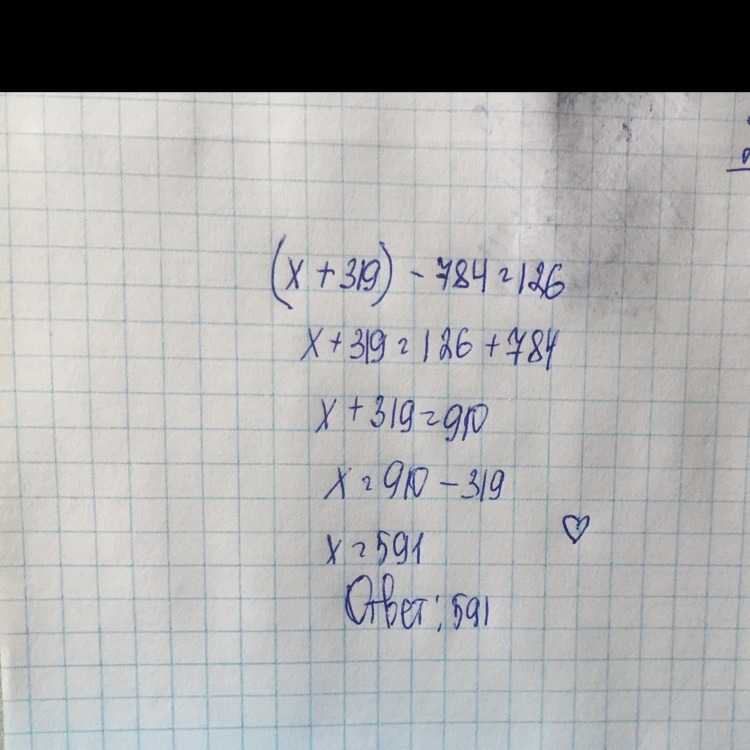 (x + 319) - 784 = 126
x + 319 = 126 + 784
x + 319 = 910
x = 910 - 319
x = 591
Ответ: 591